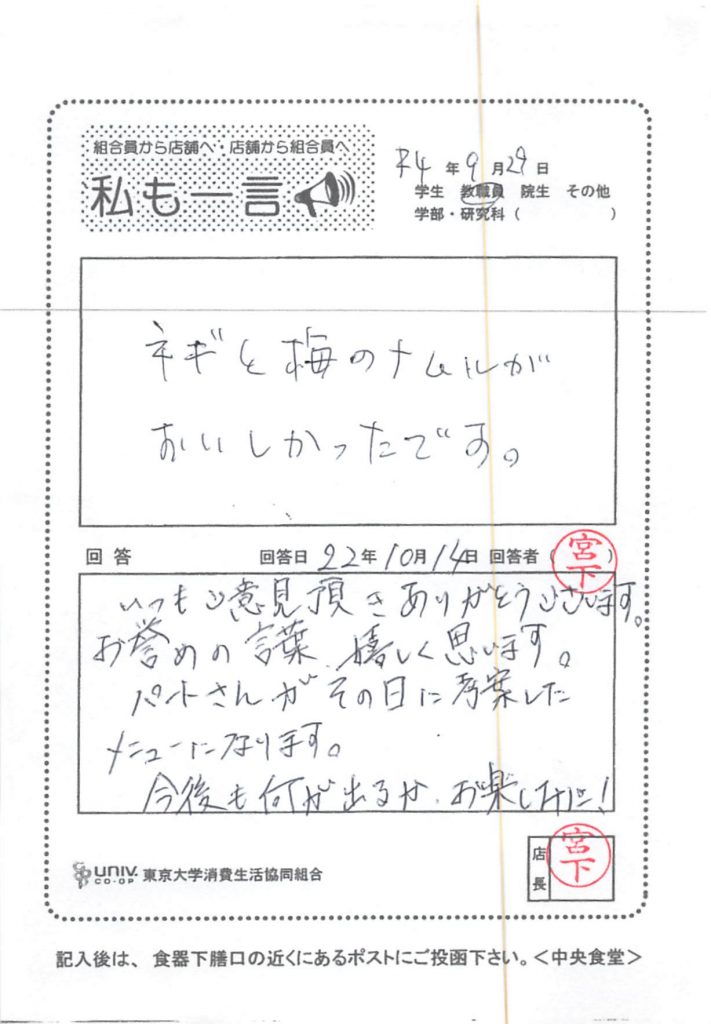 組合員から店舗へ・店舗から組合員へ
私も一言
R4 年 9 月 29 日
学生 教職員 院生 その他
学部・研究科（ ）
ネギと梅のナムルが
おいしかったです。
回答 回答日 22年 10月 14日 回答者（宮下）
いつもご意見頂きありがとうございます。
お誉めの言葉、嬉しく思います。
パートさんがその日に考案した
メニューになります。
今後も何が出るか、お楽しみに！
UNIV. CO-OP 東京大学消費生活協同組合
店長 宮下
記入後は、食器下膳口の近くにあるポストにご投函下さい。＜中央食堂＞